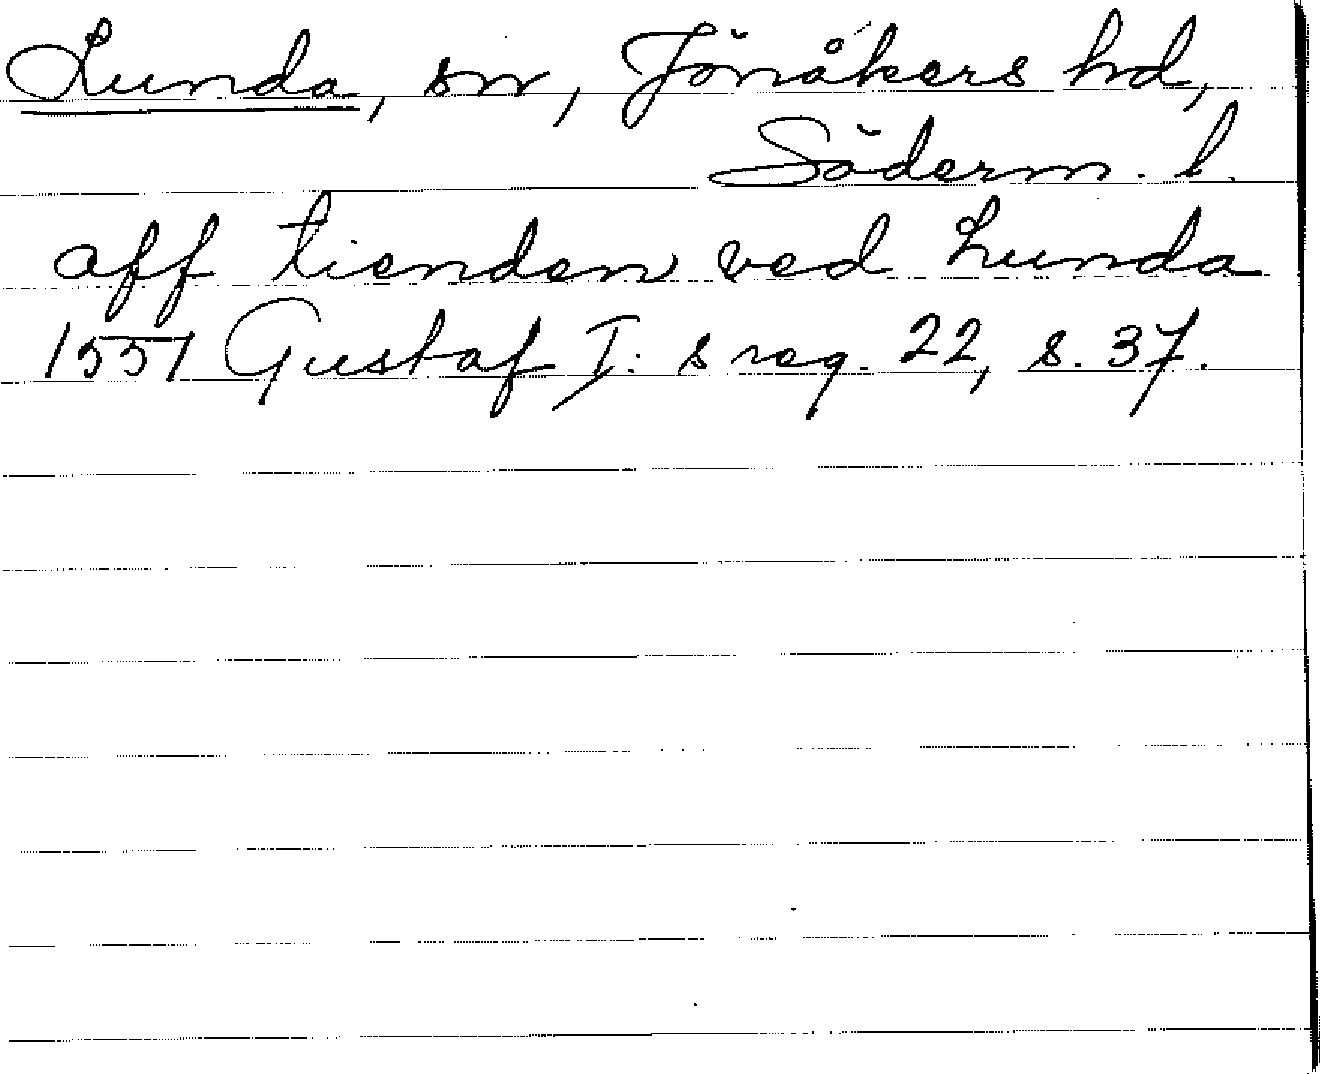 Lunda, sn, Jönåkers hd,
Söderm. l.
aff tienden ved Lunda
1551 Gustaf I: s reg. 22, s. 37.